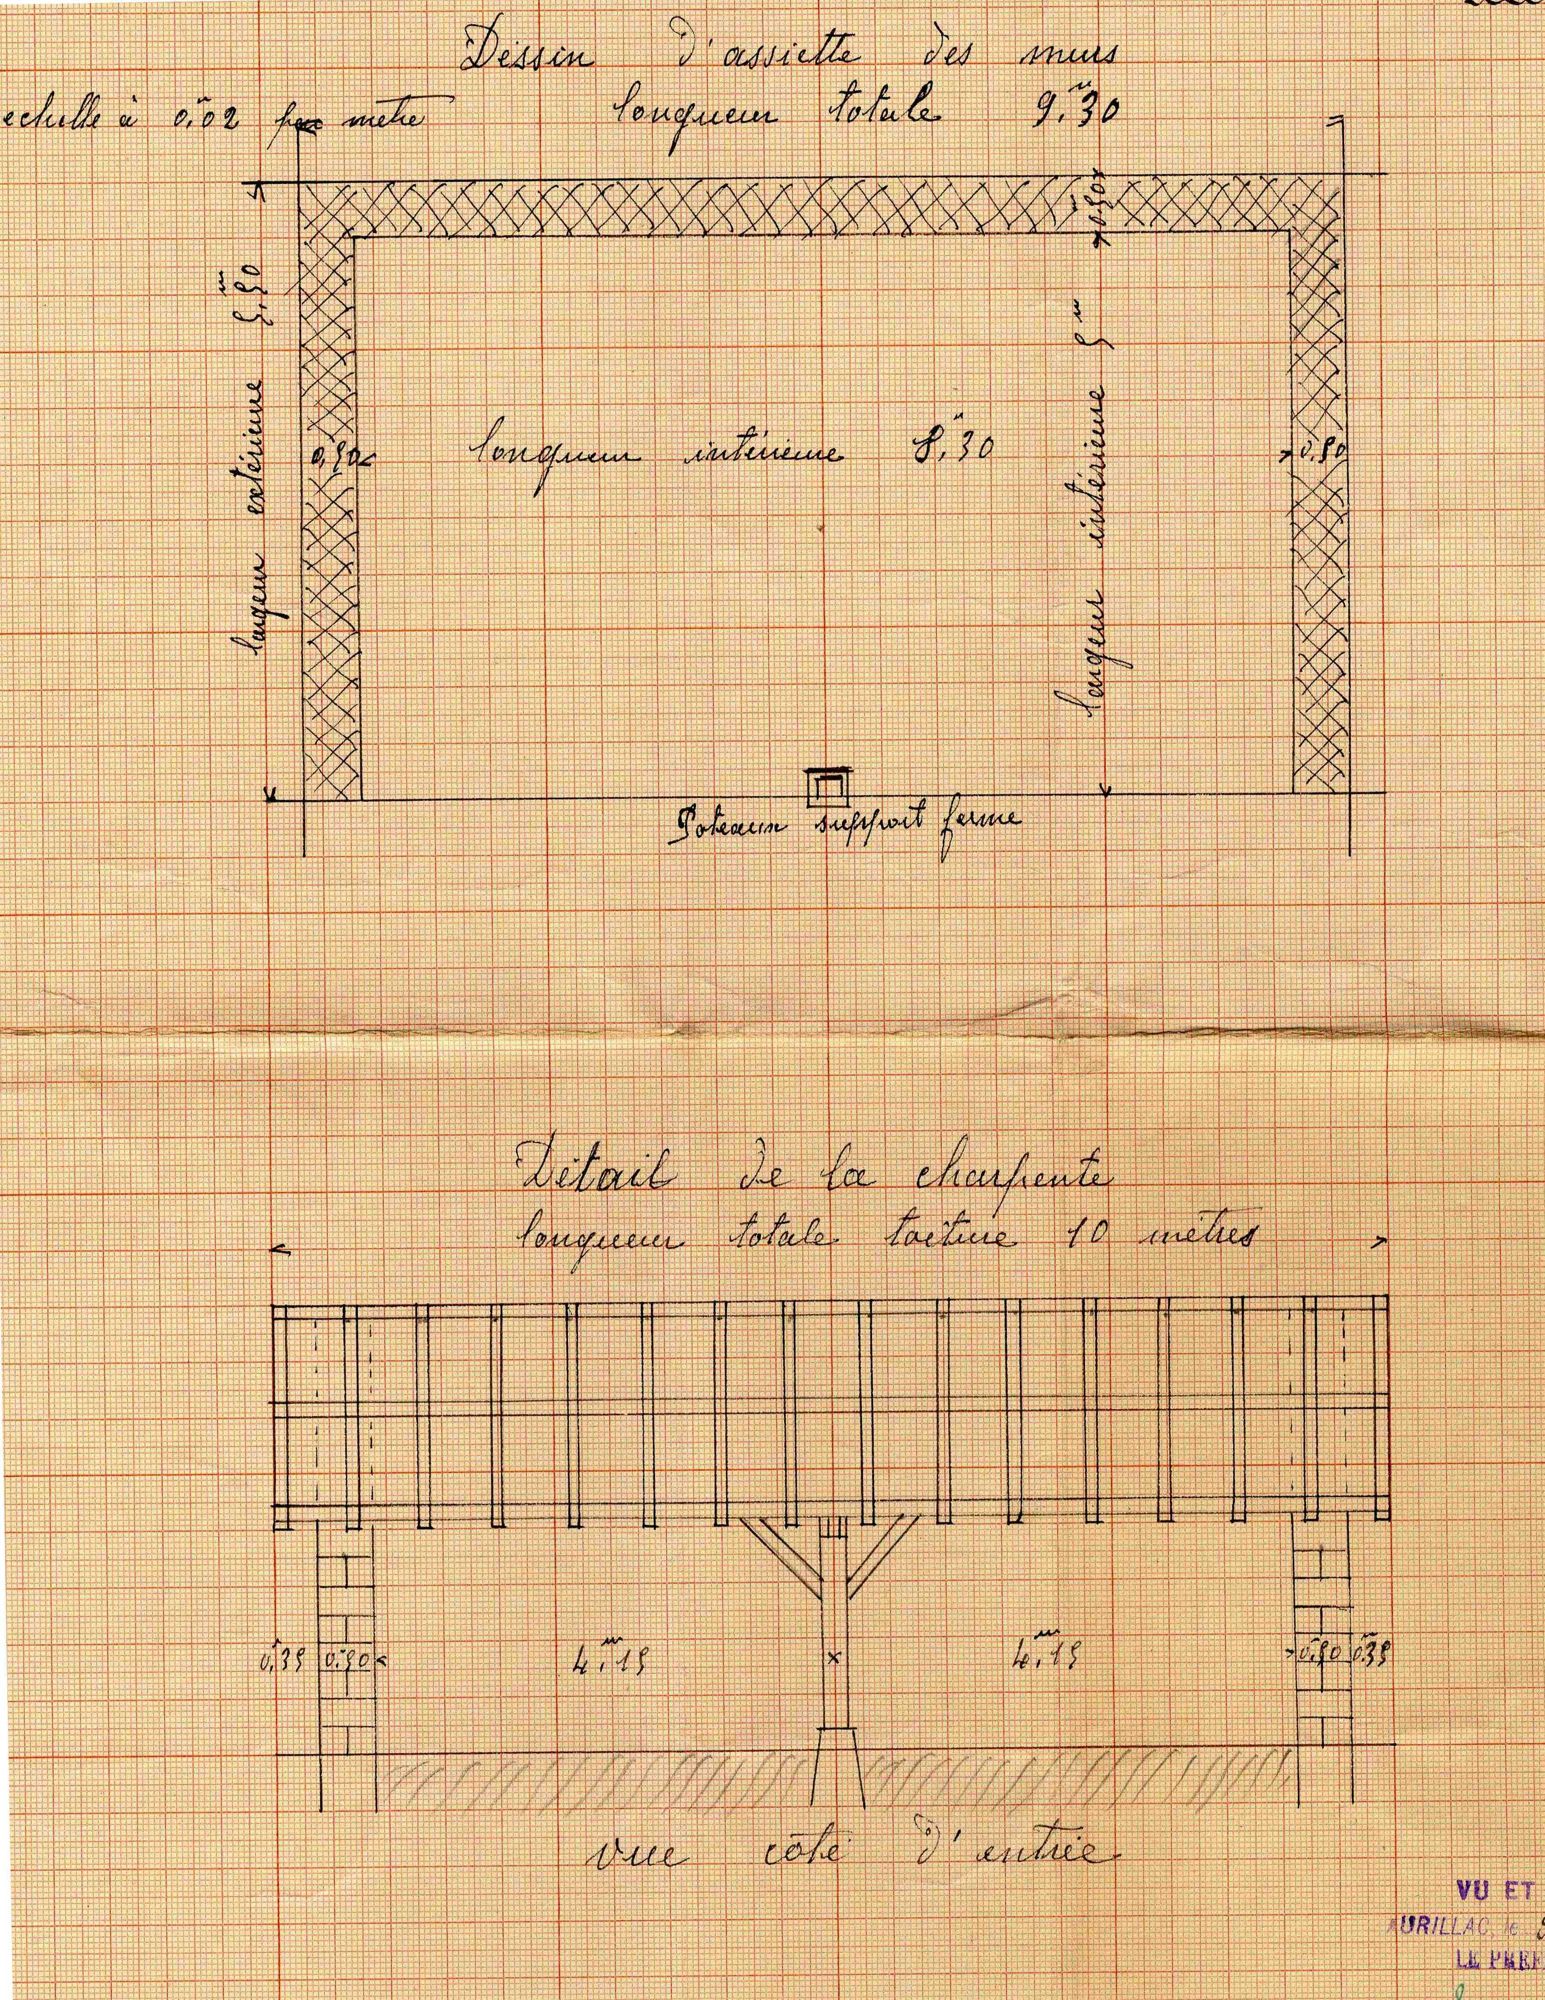 Dessin d'assiette des murs
echelle à 0,m02 par metre longueur totale 9,m30
0,50
largeur extérieure 5,m50
largeur intérieure 5m
0,50 longueur intérieure 8,m30 0,50
Poteaux support ferme
Détail de la charpente
longueur totale toiture 10 mètres
0,35 0,50 4,m15 4,m15 0,50 0,35
vue côté d'entrée
VU ET
AURILLAC, le
LE PREF